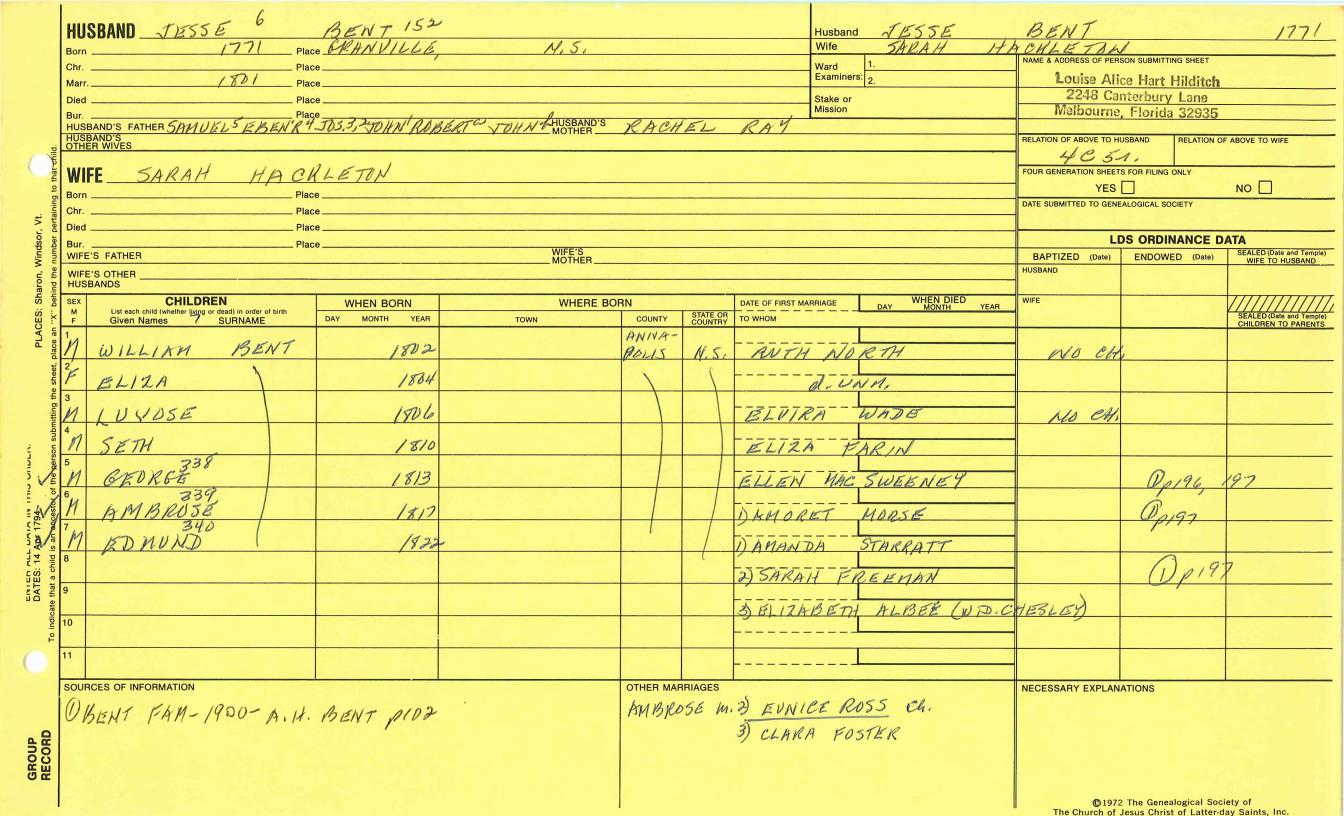 HUSBAND JESSE 6 BENT 152
Born 1771 Place GRANVILLE, N.S.
Chr. Place
Marr. 1801 Place
Died Place
Bur. Place
HUSBAND'S FATHER SAMUEL5 EBEN'R4 JOS.3,2 JOHN1 ROBERTa JOHN HUSBAND'S MOTHER RACHEL RAY
HUSBAND'S OTHER WIVES
Husband JESSE BENT 1771
Wife SARAH HACKLETON
Ward Examiners: 1.
2.
Stake or Mission
NAME & ADDRESS OF PERSON SUBMITTING SHEET
Louise Alice Hart Hilditch
2248 Canterbury Lane
Melbourne, Florida 32935
RELATION OF ABOVE TO HUSBAND RELATION OF ABOVE TO WIFE
4C 5r.
FOUR GENERATION SHEETS FOR FILING ONLY
YES NO
DATE SUBMITTED TO GENEALOGICAL SOCIETY
WIFE SARAH HACKLETON
Born Place
Chr. Place
Died Place
Bur. Place
WIFE'S FATHER WIFE'S MOTHER
WIFE'S OTHER HUSBANDS
LDS ORDINANCE DATA
BAPTIZED (Date) ENDOWED (Date) SEALED (Date and Temple) WIFE TO HUSBAND
HUSBAND
WIFE
SEALED (Date and Temple) CHILDREN TO PARENTS
SEX M F
CHILDREN
List each child (whether living or dead) in order of birth
Given Names 7 SURNAME
WHEN BORN
DAY MONTH YEAR
WHERE BORN
TOWN COUNTY STATE OR COUNTRY
DATE OF FIRST MARRIAGE
TO WHOM
WHEN DIED
DAY MONTH YEAR
1 M WILLIAM BENT 1802 ANNA-POLIS N.S. RUTH NORTH NO CH.
2 F ELIZA 1804 d. UNM.
3 M LUYDSE 1806 ELVIRA WADE NO CH.
4 M SETH 1810 ELIZA FARIN
5 M GEORGE 338 1813 ELLEN MAC SWEENEY ① p196, 197
6 M AMBROSE 339 1817 1) AMORET MORSE ① p197
7 M EDMUND 340 1822 1) AMANDA STARRATT
8 2) SARAH FREEMAN ① p197
9 3) ELIZABETH ALBEE (W.D. CHESLEY)
10
11
SOURCES OF INFORMATION
① BENT FAM-1900- A.H. BENT p102
OTHER MARRIAGES
AMBROSE m. 2) EUNICE ROSS ch.
3) CLARA FOSTER
NECESSARY EXPLANATIONS
©1972 The Genealogical Society of
The Church of Jesus Christ of Latter-day Saints, Inc.
GROUP RECORD
DATES: 14 Apr 1794
PLACES: Sharon, Windsor, Vt.
To indicate that a child is an ancestor of the person submitting the sheet, place an "X" behind the number pertaining to that child.